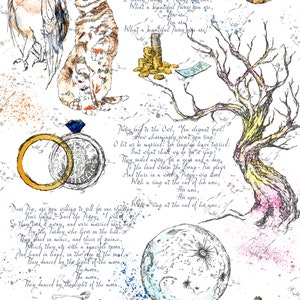 What a beautiful Pussy you are,
You are,
You are!
What a beautiful Pussy you are!
Pussy said to the Owl, "You elegant fowl!
How charmingly sweet you sing!
O let us be married! too long we have tarried:
But what shall we do for a ring?"
They sailed away, for a year and a day,
To the land where the Bong-Tree grows
And there in a wood a Piggy-wig stood
With a ring at the end of his nose,
His nose,
His nose,
With a ring at the end of his nose.
Dear Pig, are you willing to sell for one shilling
Your ring?" Said the Piggy, "I will."
So they took it away, and were married next day
By the Turkey who lives on the hill.
They dined on mince, and slices of quince,
Which they ate with a runcible spoon;
And hand in hand, on the edge of the sand,
They danced by the light of the moon,
The moon,
The moon,
They danced by the light of the moon.